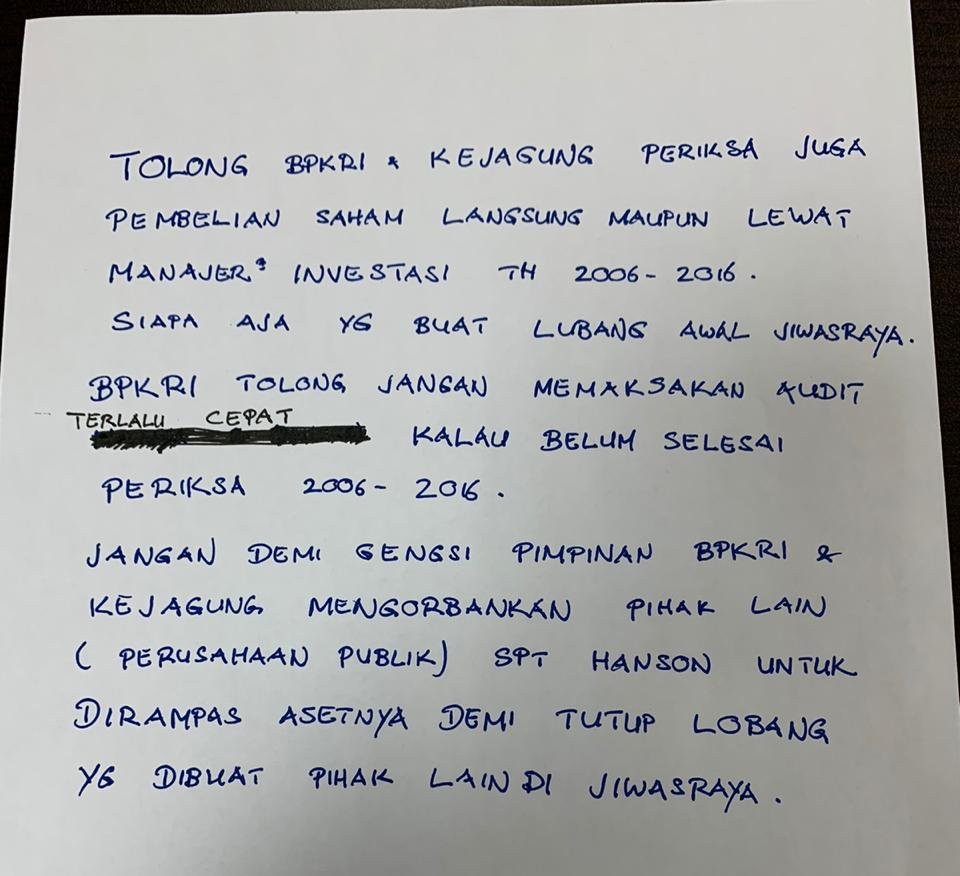 TOLONG BPKRI & KEJAGUNG PERIKSA JUGA
PEMBELIAN SAHAM LANGSUNG MAUPUN LEWAT
MANAJER² INVESTASI TH 2006-2016.
SIAPA AJA YG BUAT LUBANG AWAL JIWASRAYA.
BPKRI TOLONG JANGAN MEMAKSAKAN AUDIT
TERLALU CEPAT
KALAU BELUM SELESAI
PERIKSA 2006-2016.
JANGAN DEMI GENGSI PIMPINAN BPKRI &
KEJAGUNG MENGORBANKAN PIHAK LAIN
(PERUSAHAAN PUBLIK) SPT HANSON UNTUK
DIRAMPAS ASETNYA DEMI TUTUP LOBANG
YG DIBUAT PIHAK LAIN DI JIWASRAYA.